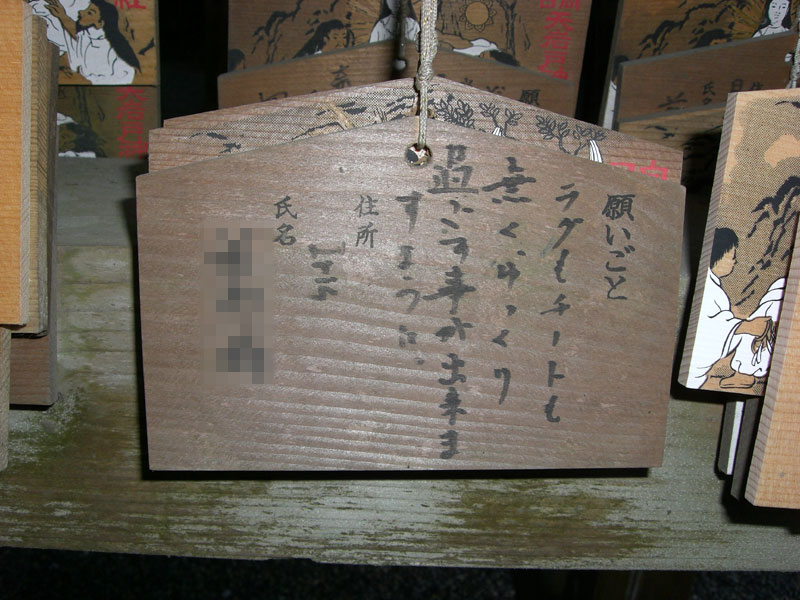 願いごと
ラグもチートも
無くゆっくり
過ごす事が出来ま
すように。
住所
氏名